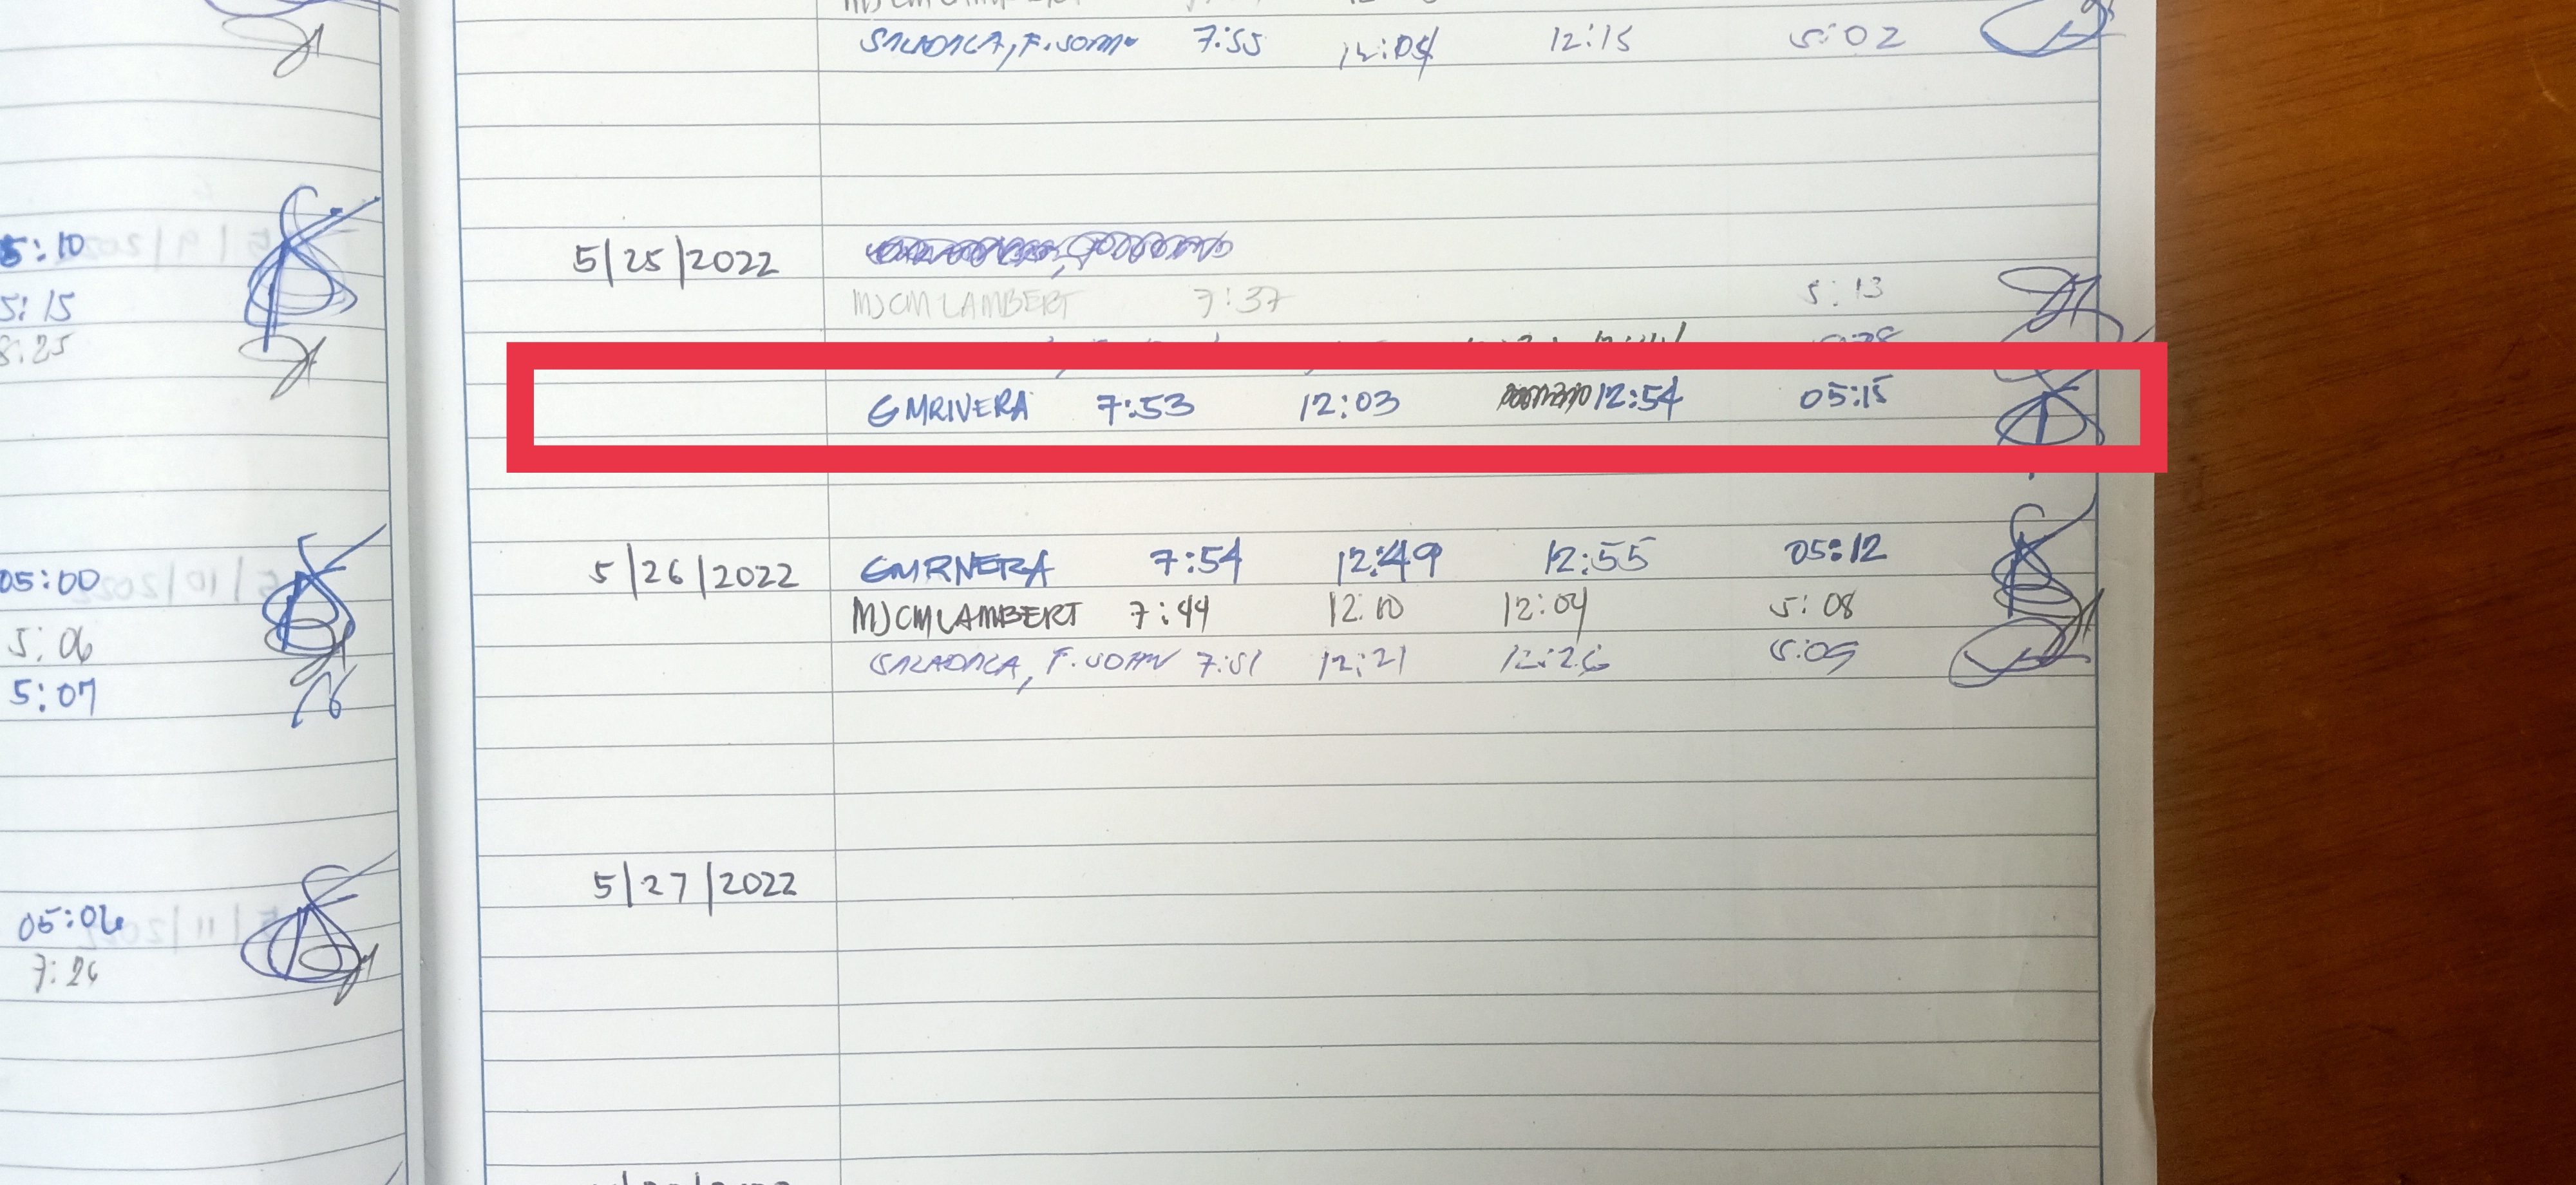 SALADAGA, F. JOHN 7:55 12:04 12:15 5:02
5:10
5/25/2022
5:15
MJCMLAMBERT 7:37 5:13
8:25
GMRIVERA 7:53 12:03 12:54 05:15
05:00
5/26/2022 GMRIVERA 7:54 12:49 12:55 05:12
5:06
MJCMLAMBERT 7:44 12:10 12:04 5:08
5:07
SALADAGA, F. JOHN 7:51 12:21 12:26 5:09
5/27/2022
05:06
7:26